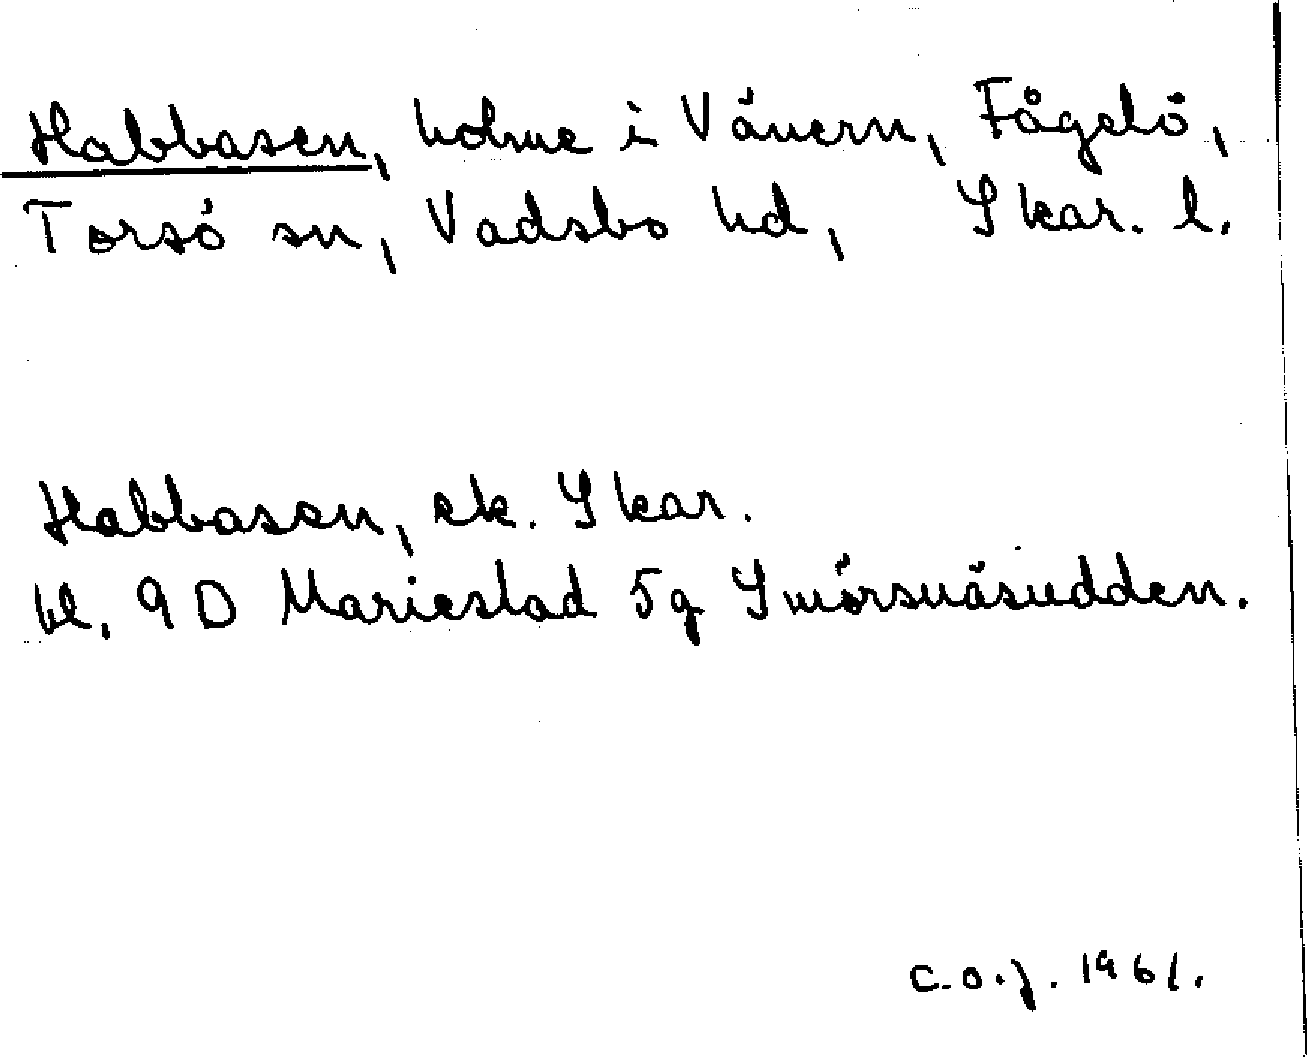 Habbasen, holme i Vänern, Fågelö,
Torsö sn, Vadsbo hd, Skar. l.
Habbasen, ek. Skar.
bl. 9D Mariestad 5g Smörsnäsudden.
C.O.J. 1961.